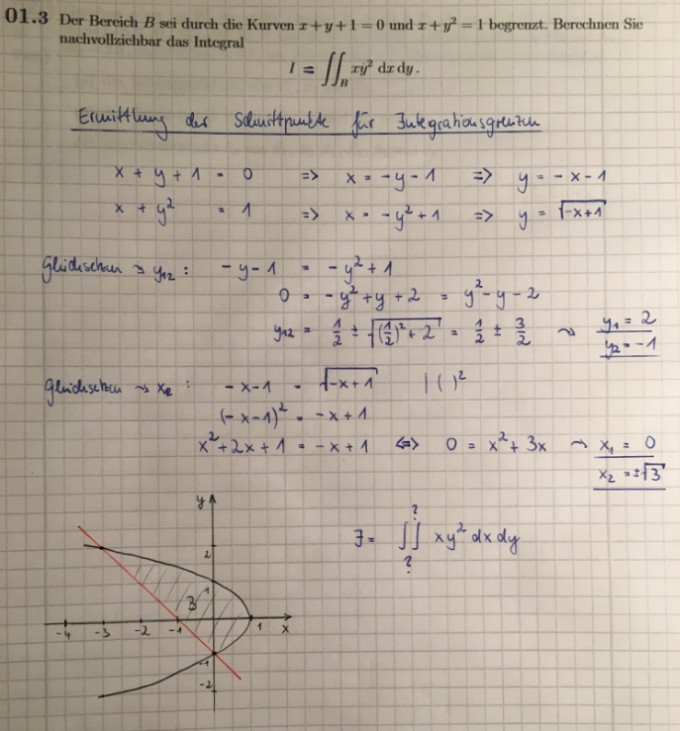 01.3 Der Bereich B sei durch die Kurven x + y + 1 = 0 und x + y² = 1 begrenzt. Berechnen Sie
nachvollziehbar das Integral
I = ∬_B xy² dx dy .
Ermittlung der Schnittpunkte für Integrationsgrenzen
x + y + 1 = 0 => x = -y - 1 => y = -x - 1
x + y² = 1 => x = -y² + 1 => y = √(-x+1)
Gleichsetzen → y₁₂ : -y - 1 = -y² + 1
0 = -y² + y + 2 = y² - y - 2
y₁₂ = 1/2 ± √((1/2)² + 2) = 1/2 ± 3/2 ~> y₁ = 2
y₂ = -1
Gleichsetzen → : -x - 1 = √(-x+1) | ( )²
(-x-1)² = -x + 1
x² + 2x + 1 = -x + 1 <=> 0 = x² + 3x ~> x₁ = 0
x₂ = ±√3
y
?
I = ∬ xy² dx dy
?
2
1
B
-4 -3 -2 -1 1 x
-1
-2